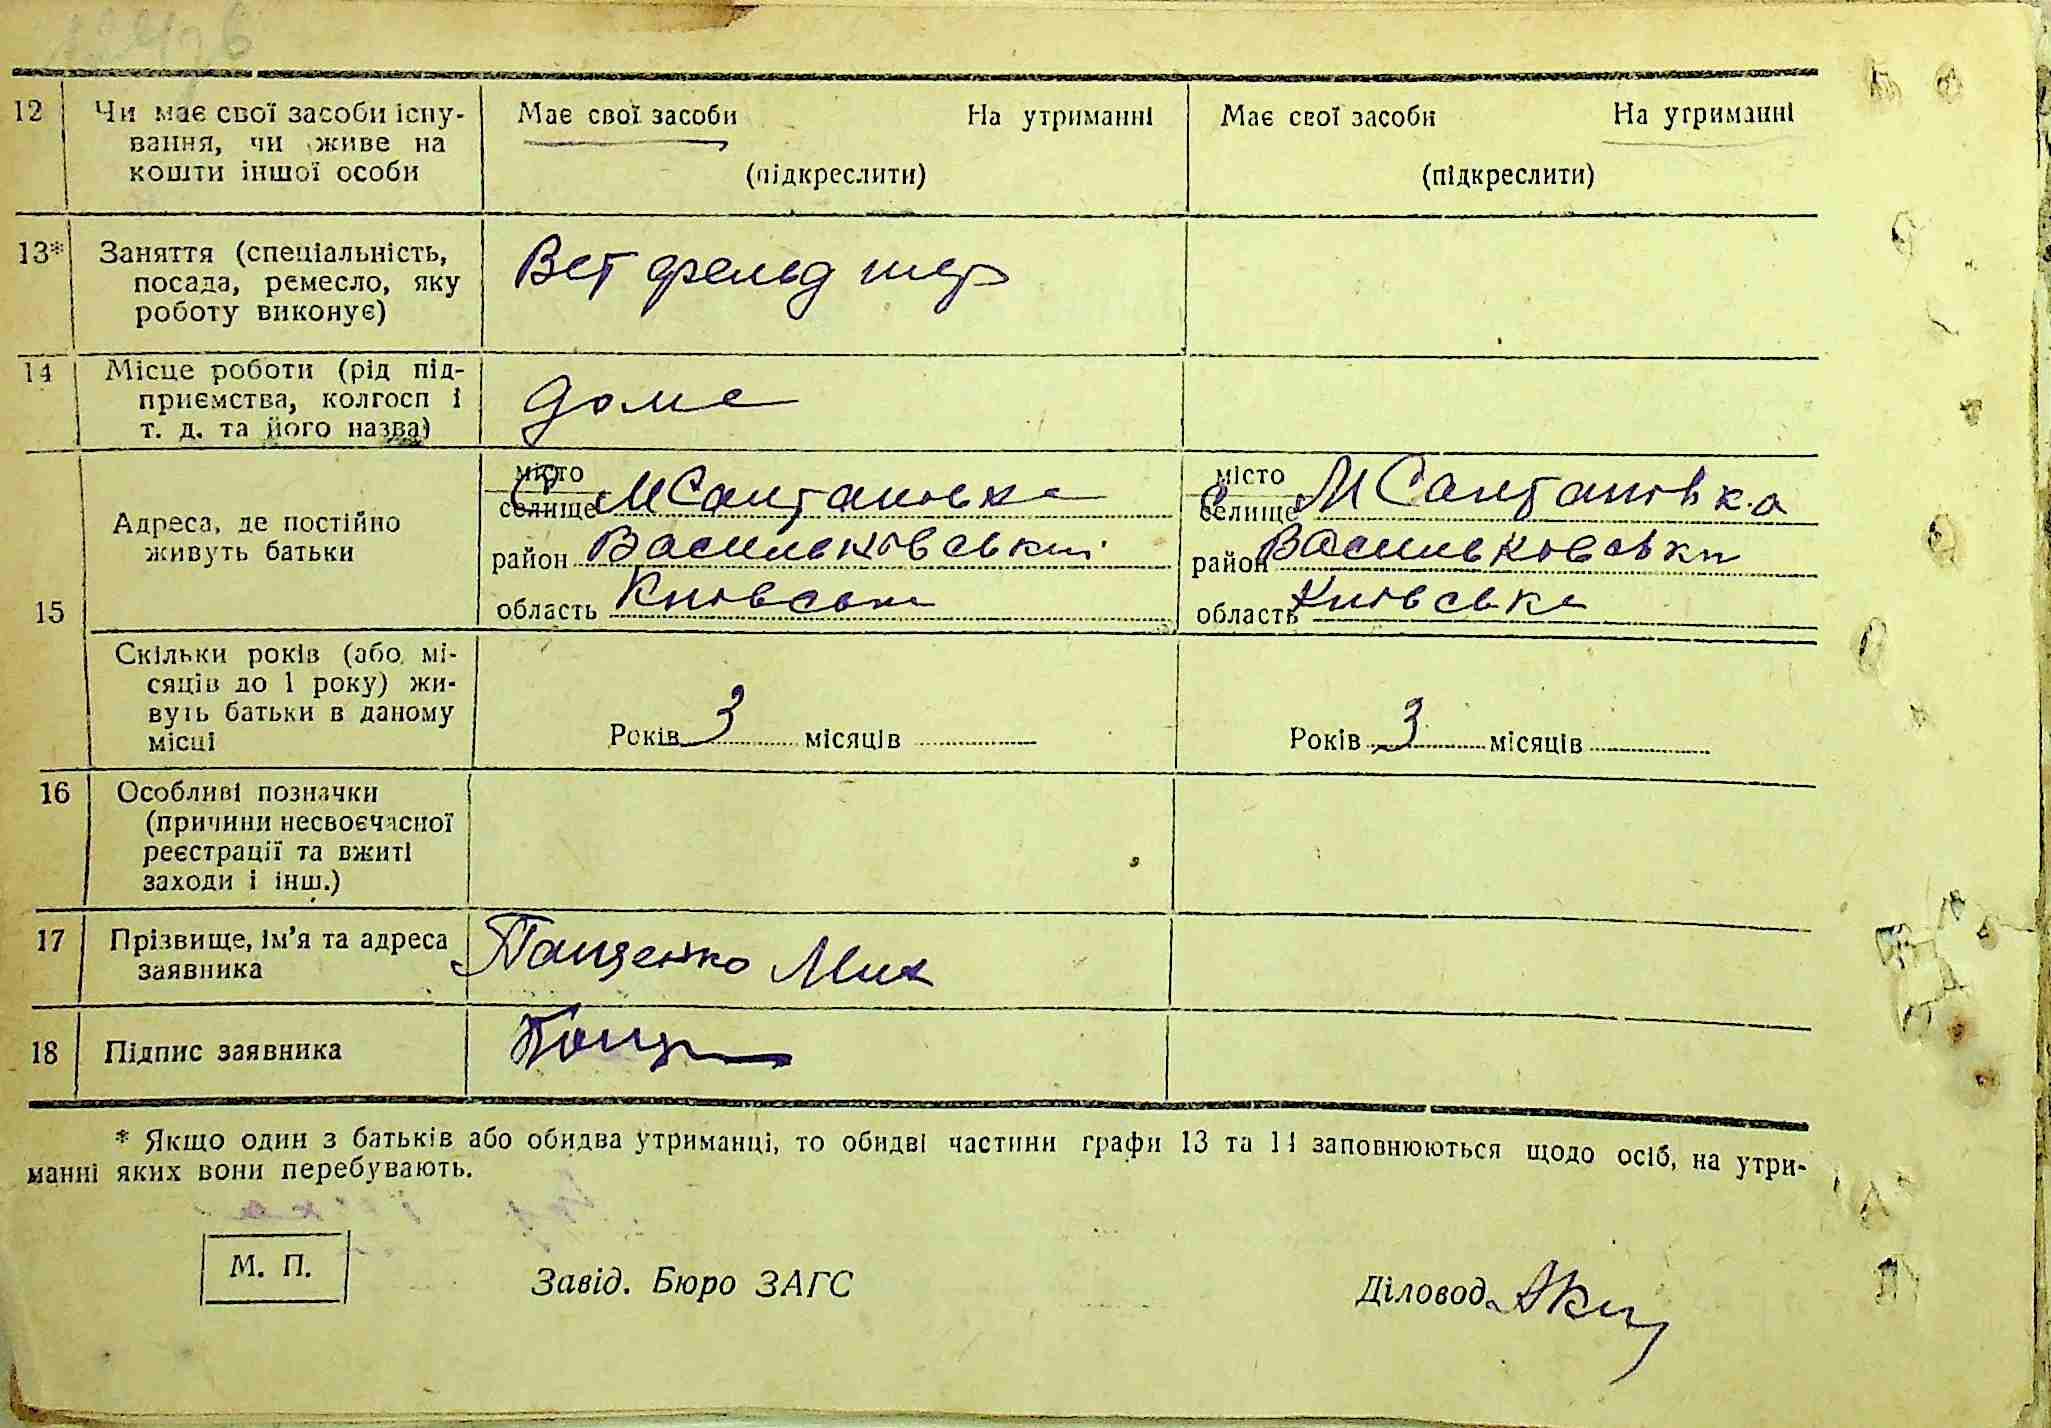 12 Чи має свої засоби існу-
вання, чи живе на
кошти іншої особи
Має свої засоби На утриманні
(підкреслити)
Має свої засоби На утриманні
(підкреслити)
13* Заняття (спеціальність,
посада, ремесло, яку
роботу виконує)
Вет фельдшер
14 Місце роботи (рід під-
приємства, колгосп і
т. д. та його назва)
доме
15
Адреса, де постійно
живуть батьки
місто
селище М Салтановка
район Васильковський
область Київська
місто
селище М Салтановка
район Васильковськи
область Київська
Скільки років (або мі-
сяців до 1 року) жи-
вуть батьки в даному
місці
Років 3 місяців
Років 3 місяців
16 Особливі позначки
(причини несвоєчасної
реєстрації та вжиті
заходи і інш.)
17 Прізвище, ім'я та адреса
заявника
Пащенко Мих
18 Підпис заявника
Пащ
* Якщо один з батьків або обидва утриманці, то обидві частини графи 13 та 14 заповнюються щодо осіб, на утри-
манні яких вони перебувають.
М. П.
Завід. Бюро ЗАГС
Діловод